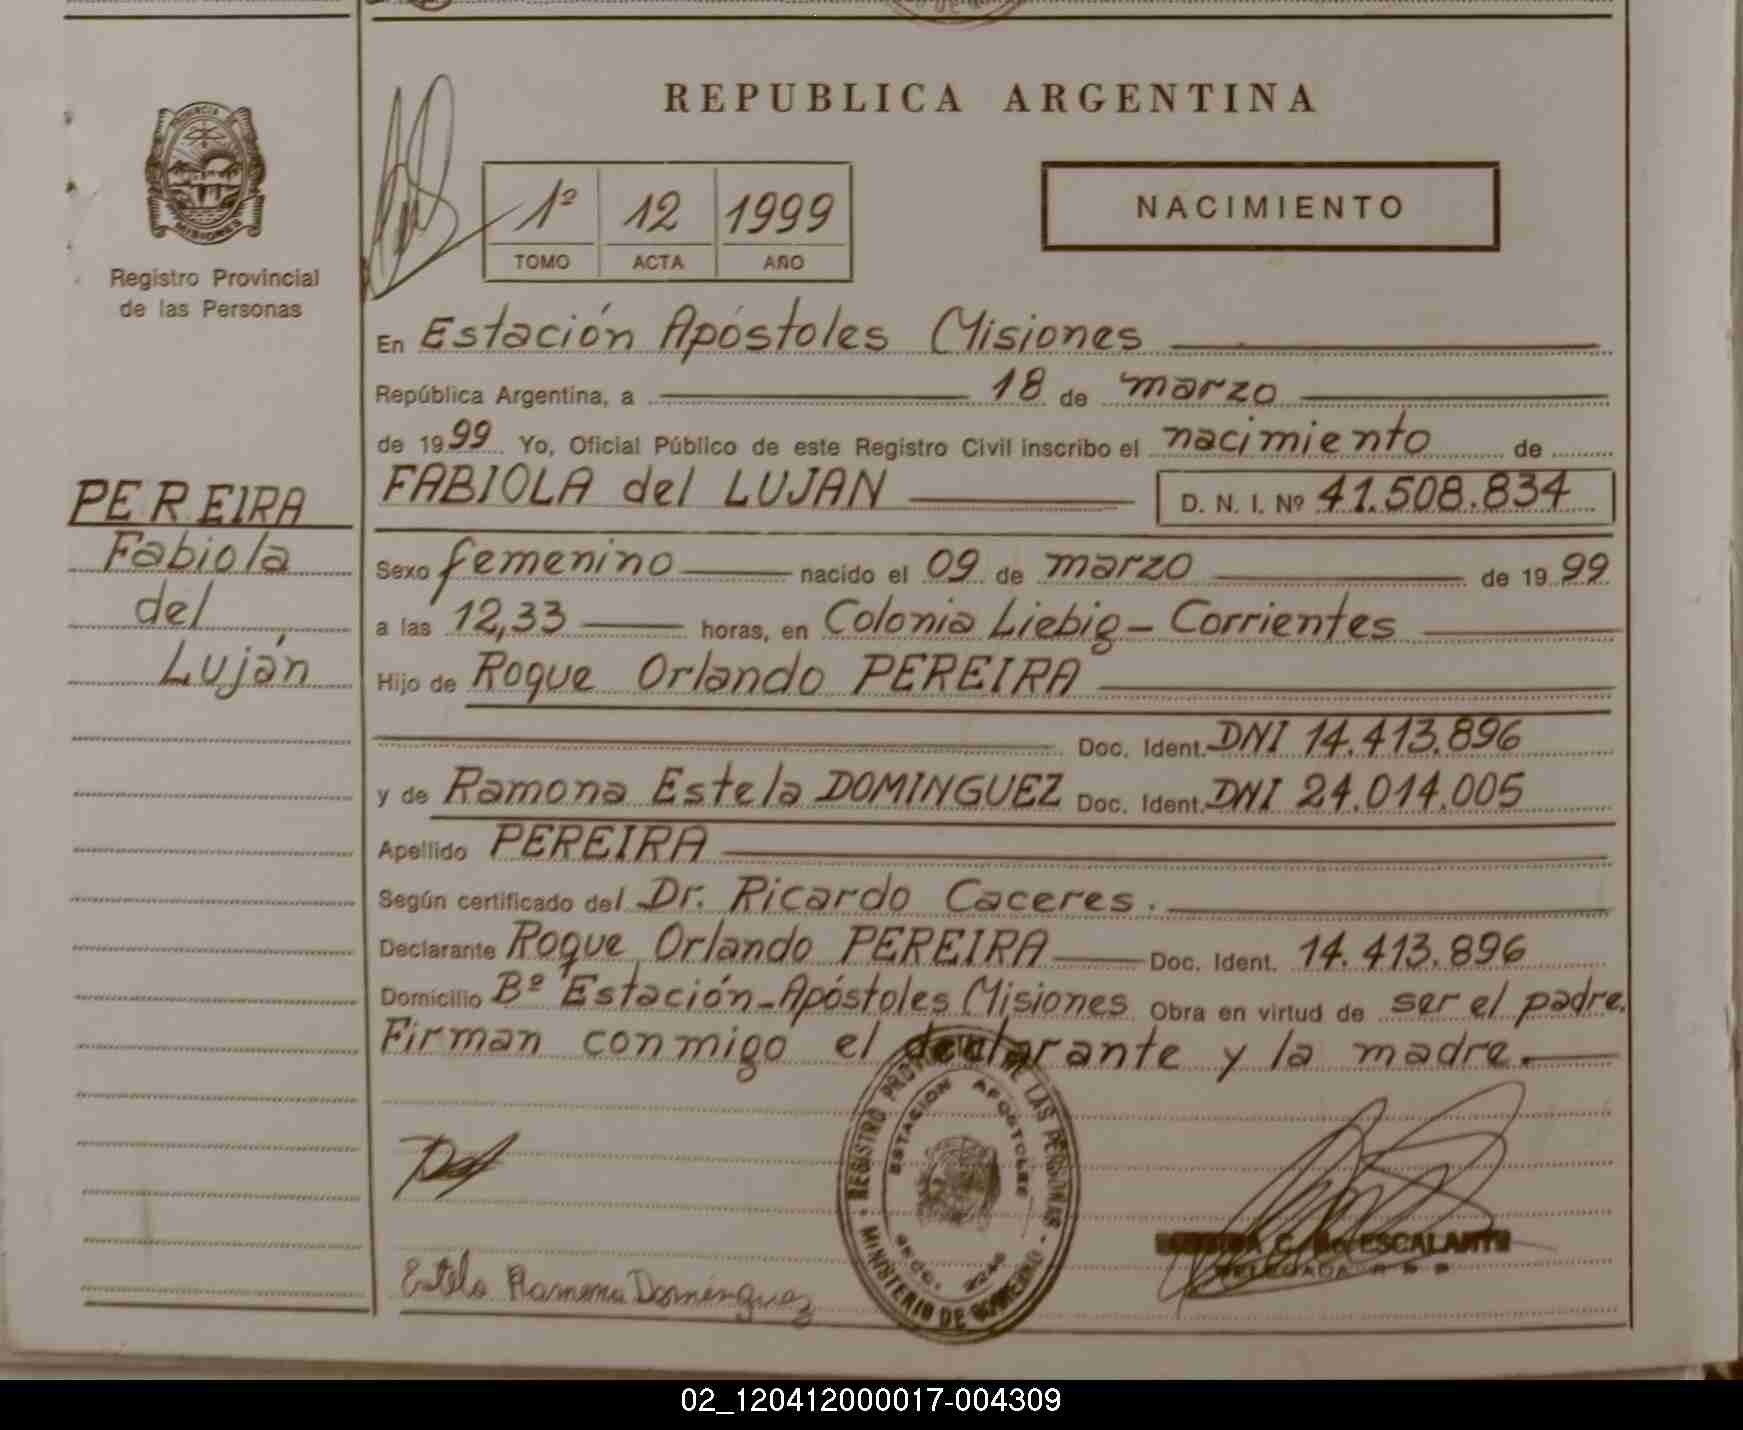 REPUBLICA ARGENTINA
PROVINCIA
MISIONES
Registro Provincial
de las Personas
1º 12 1999
TOMO ACTA AÑO
NACIMIENTO
En Estación Apóstoles Misiones
República Argentina, a 18 de marzo
de 1999 Yo, Oficial Público de este Registro Civil inscribo el nacimiento de
FABIOLA del LUJAN D. N. I. Nº 41.508.834
PEREIRA
Fabiola
del
Luján
Sexo femenino nacido el 09 de marzo de 1999
a las 12,33 horas, en Colonia Liebig - Corrientes
Hijo de Roque Orlando PEREIRA
Doc. Ident. DNI 14.413.896
y de Ramona Estela DOMINGUEZ Doc. Ident. DNI 24.014.005
Apellido PEREIRA
Según certificado del Dr. Ricardo Caceres.
Declarante Roque Orlando PEREIRA Doc. Ident. 14.413.896
Domicilio Bº Estación-Apóstoles Misiones Obra en virtud de ser el padre.
Firman conmigo el declarante y la madre.
REGISTRO PROVINCIAL DE LAS PERSONAS
ESTACION APOSTOLES
MINISTERIO DE GOBIERNO
Estela Ramona Dominguez
C. ESCALANTE
DELEGADA
02_120412000017-004309